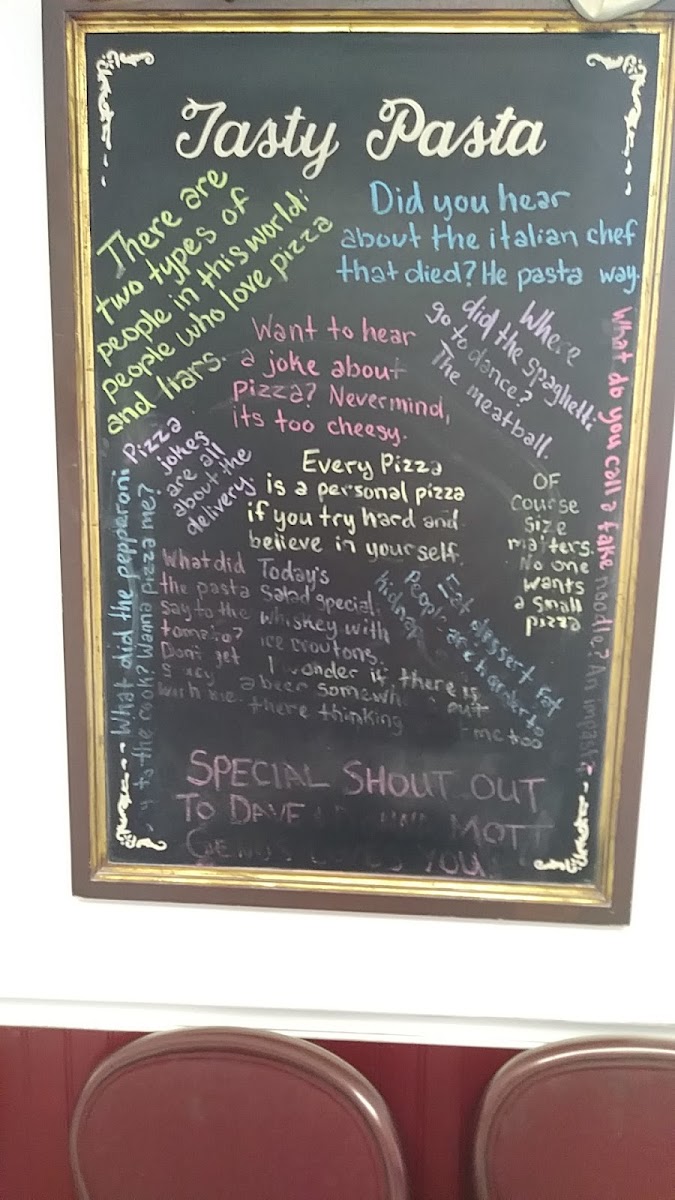 Tasty Pasta
There are
two types of
people in this world:
people who love pizza
and liars.
Did you hear
about the italian chef
that died? He pasta way.
Where
did the spaghetti
go to dance?
The meatball.
What do you call a fake noodle? An impasta
Want to hear
a joke about
Pizza? Nevermind,
its too cheesy.
Pizza
jokes
are all
about the
delivery.
Every Pizza
is a personal pizza
if you try hard and
believe in yourself.
OF
course
size
matters.
No one
wants
a small
pizza
What did the pepperoni
to the cook? Wanna pizza me?
What did
the pasta
say to the
tomato?
Dont get
with me.
Today's
Salad special:
Whiskey with
ice croutons.
Eat dessert fat
people are harder to
kidnap
I wonder if there is
a beer out
there thinking
me too
SPECIAL SHOUT OUT
TO DAVE MOTT
YOU